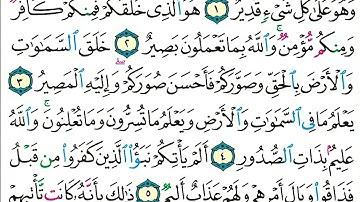 وَهُوَ عَلَىٰ كُلِّ شَىْءٍ قَدِيرٌ ١ هُوَ ٱلَّذِى خَلَقَكُمْ فَمِنكُمْ كَافِرٌ
وَمِنكُم مُّؤْمِنٌ ۚ وَٱللَّهُ بِمَا تَعْمَلُونَ بَصِيرٌ ٢ خَلَقَ ٱلسَّمَٰوَٰتِ
وَٱلْأَرْضَ بِٱلْحَقِّ وَصَوَّرَكُمْ فَأَحْسَنَ صُوَرَكُمْ ۖ وَإِلَيْهِ ٱلْمَصِيرُ ٣
يَعْلَمُ مَا فِى ٱلسَّمَٰوَٰتِ وَٱلْأَرْضِ وَيَعْلَمُ مَا تُسِرُّونَ وَمَا تُعْلِنُونَ ۚ وَٱللَّهُ
عَلِيمٌۢ بِذَاتِ ٱلصُّدُورِ ٤ أَلَمْ يَأْتِكُمْ نَبَؤُا۟ ٱلَّذِينَ كَفَرُوا۟ مِن قَبْلُ
فَذَاقُوا۟ وَبَالَ أَمْرِهِمْ وَلَهُمْ عَذَابٌ أَلِيمٌ ٥ ذَٰلِكَ بِأَنَّهُۥ كَانَت تَّأْتِيهِمْ